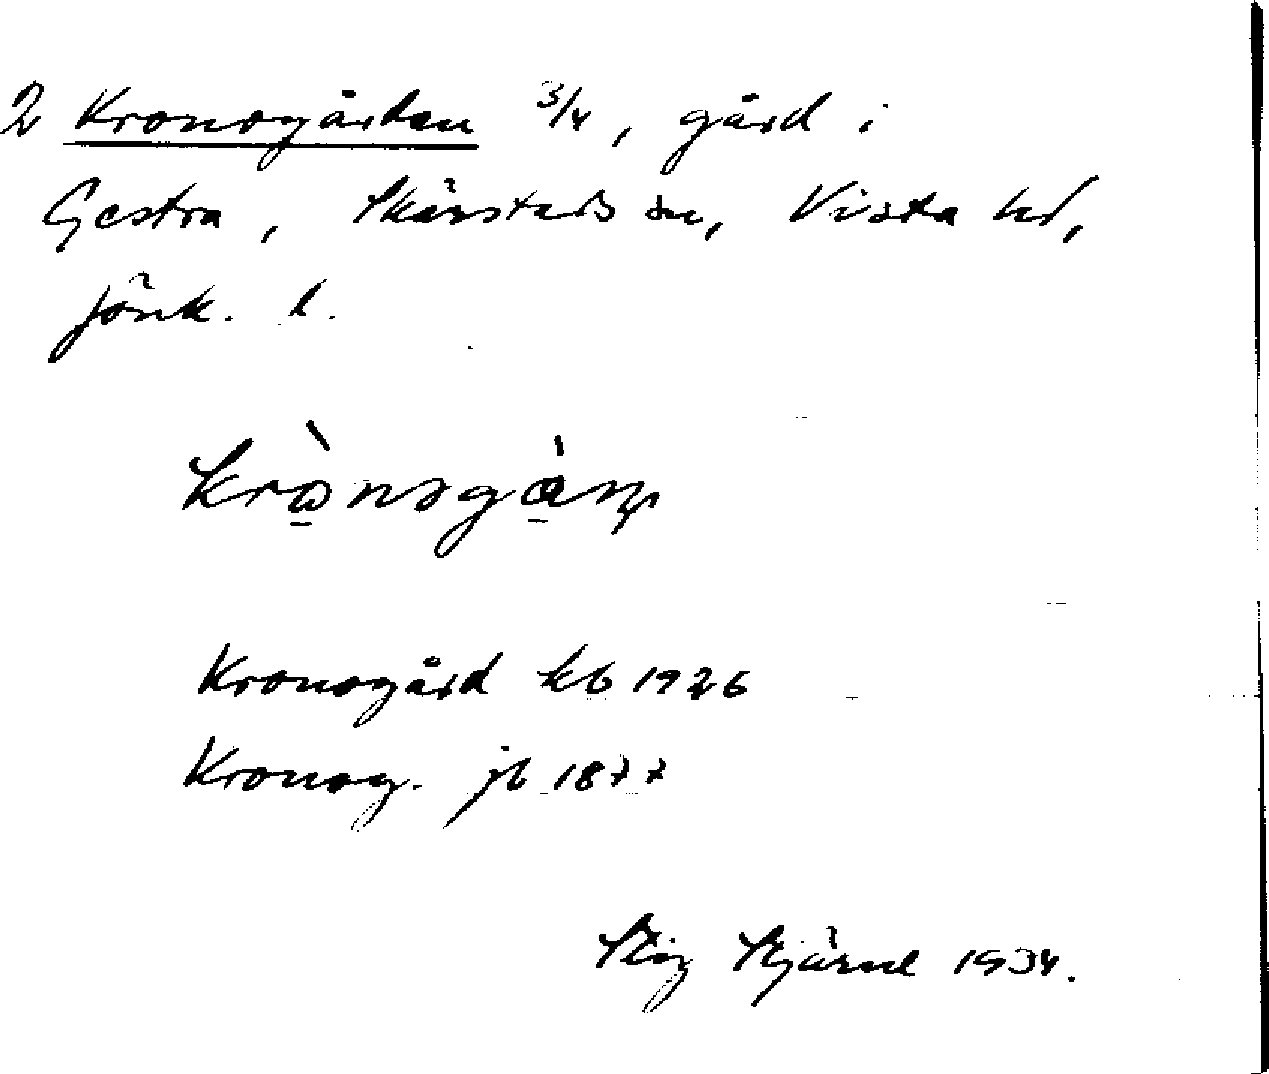 2 Kronogården 3/4, gård i
Gestra, Skärstads sn, Vista hd,
Jönk. l.
krὼnəgὰṇ
Kronogård kb 1926
Kronog. jb 1877
Stig Stjärne 1934.